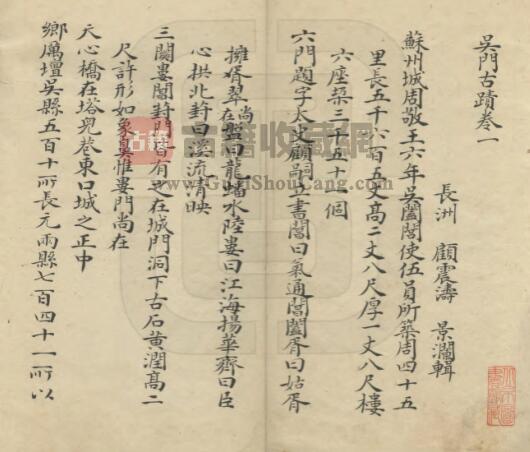 吳門古蹟卷一
長洲 顧震濤 景瀾輯
蘇州城周敬王六年吳闔閭使伍員所築周四十五
里長五千六百五丈高二丈八尺厚一丈八尺樓
六座垜三千五十一個
六門題字太史顧嗣立書閶曰氣通閶闔胥曰姑胥
擁翠尚在盤曰龍蟠水陸婁曰江海揚華齊曰臣
心拱北葑曰溪流清映
三關婁閶葑門皆有之在城門洞下古石黃潤高二
尺許形如象鼻惟婁門尚在
天心橋在塔兒巷東口城之正中
鄉厲壇吳縣五百十一所長元兩縣七百四十一所以
古籍 古籍收藏网
www.GuJiShouCang.com